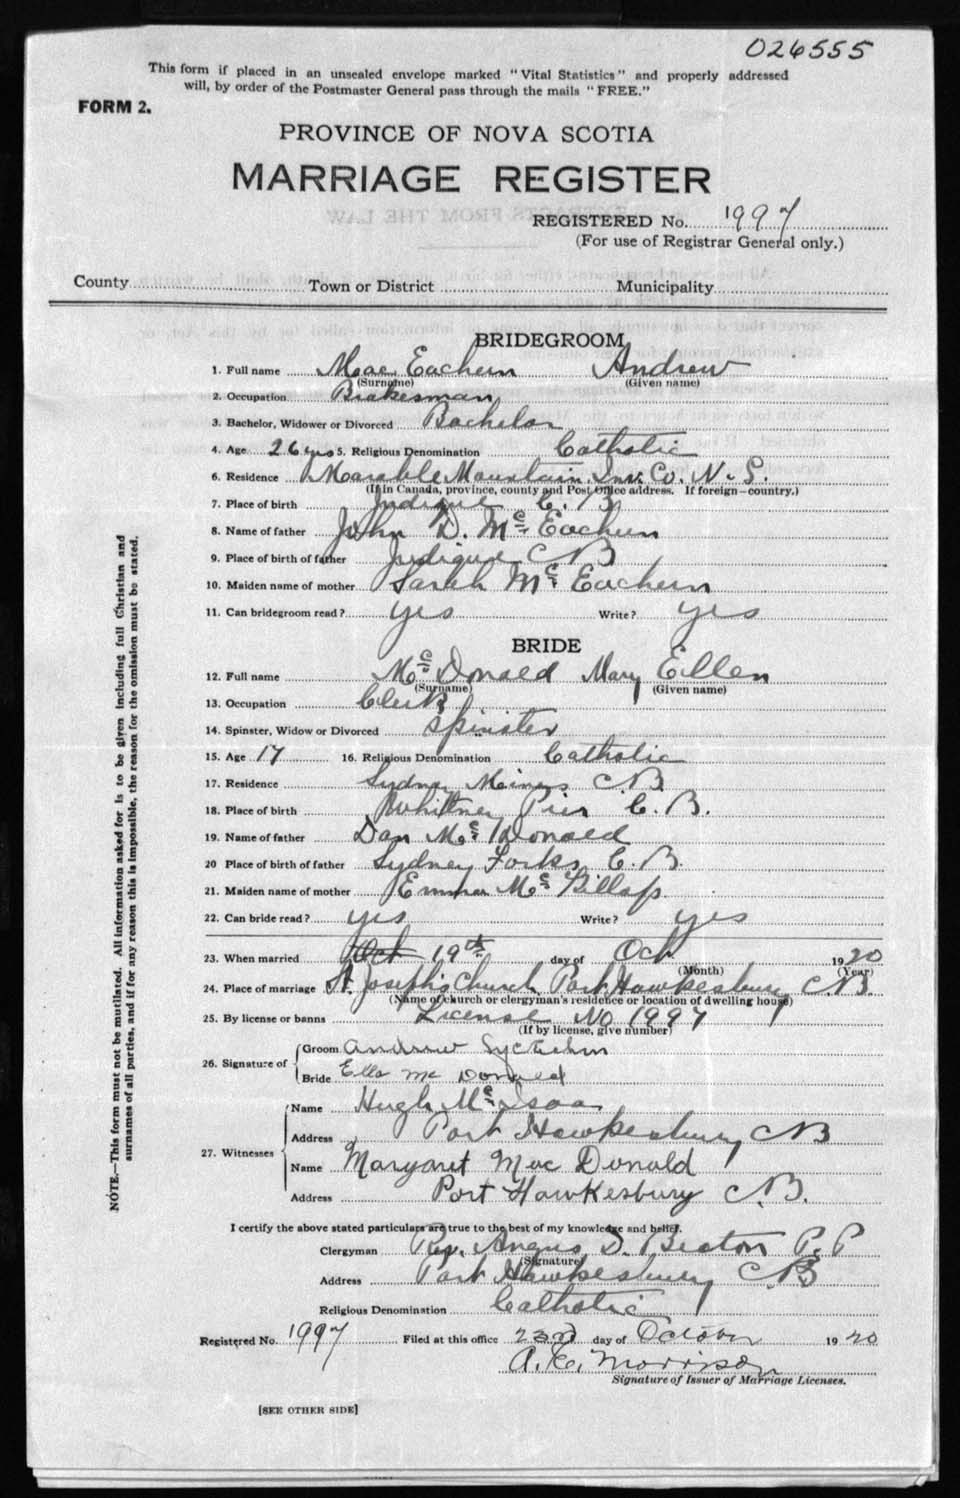 026555
This form if placed in an unsealed envelope marked "Vital Statistics" and properly addressed
will, by order of the Postmaster General pass through the mails "FREE."
FORM 2.
PROVINCE OF NOVA SCOTIA
MARRIAGE REGISTER
REGISTERED No. 1997
(For use of Registrar General only.)
County Town or District Municipality
BRIDEGROOM
1. Full name Mac Eachern Andrew
(Surname) (Given name)
2. Occupation Brakesman
3. Bachelor, Widower or Divorced Bachelor
4. Age 26 yrs 5. Religious Denomination Catholic
6. Residence Marable Mountain Inv. Co. N. S.
(If in Canada, province, county and Post Office address. If foreign—country.)
7. Place of birth Judique C. B.
8. Name of father John D. Mc Eachern
9. Place of birth of father Judique CB
10. Maiden name of mother Sarah Mc Eachern
11. Can bridegroom read? yes Write? yes
BRIDE
12. Full name Mc Donald Mary Ellen
(Surname) (Given name)
13. Occupation Clerk
14. Spinster, Widow or Divorced Spinster
15. Age 17 16. Religious Denomination Catholic
17. Residence Sydney Mines C.B.
18. Place of birth Whittney Pier C. B.
19. Name of father Dan Mc Donald
20 Place of birth of father Sydney Forks C. B.
21. Maiden name of mother Emma Mc
22. Can bride read? yes Write? yes
23. When married Oct 19th day of Oct 1920
(Month) (Year)
24. Place of marriage St. Joseph's Church Port Hawkesbury CB.
(Name of church or clergyman's residence or location of dwelling house)
25. By license or banns License No 1997
(If by license, give number)
26. Signature of Groom Andrew
Bride Ella Mc Donald
27. Witnesses
Name Hugh Mc Isaac
Address Port Hawkesbury CB
Name Margaret Mac Donald
Address Port Hawkesbury C.B.
I certify the above stated particulars are true to the best of my knowledge and belief.
Clergyman Rev. Angus D. Beaton P. P
(Signature)
Address Port Hawkesbury CB
Religious Denomination Catholic
Registered No. 1997 Filed at this office 23rd day of October 1920
A. C. Morrison
Signature of Issuer of Marriage Licenses.
[SEE OTHER SIDE]
NOTE.—This form must not be mutilated. All information asked for is to be given including full Christian and
surnames of all parties, and if for any reason this is impossible, the reason for the omission must be stated.